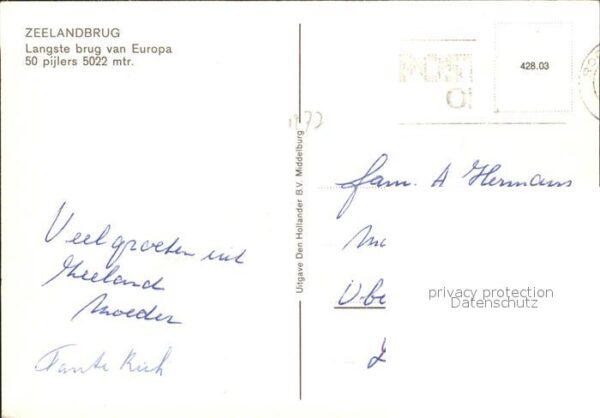 ZEELANDBRUG
Langste brug van Europa
50 pijlers 5022 mtr.
Veel groeten uit
Zeeland
Moeder
Tante Rich
1973
Uitgave Den Hollander B.V. Middelburg
POST
428.03
fam. A Hermans
privacy protection
Datenschutz